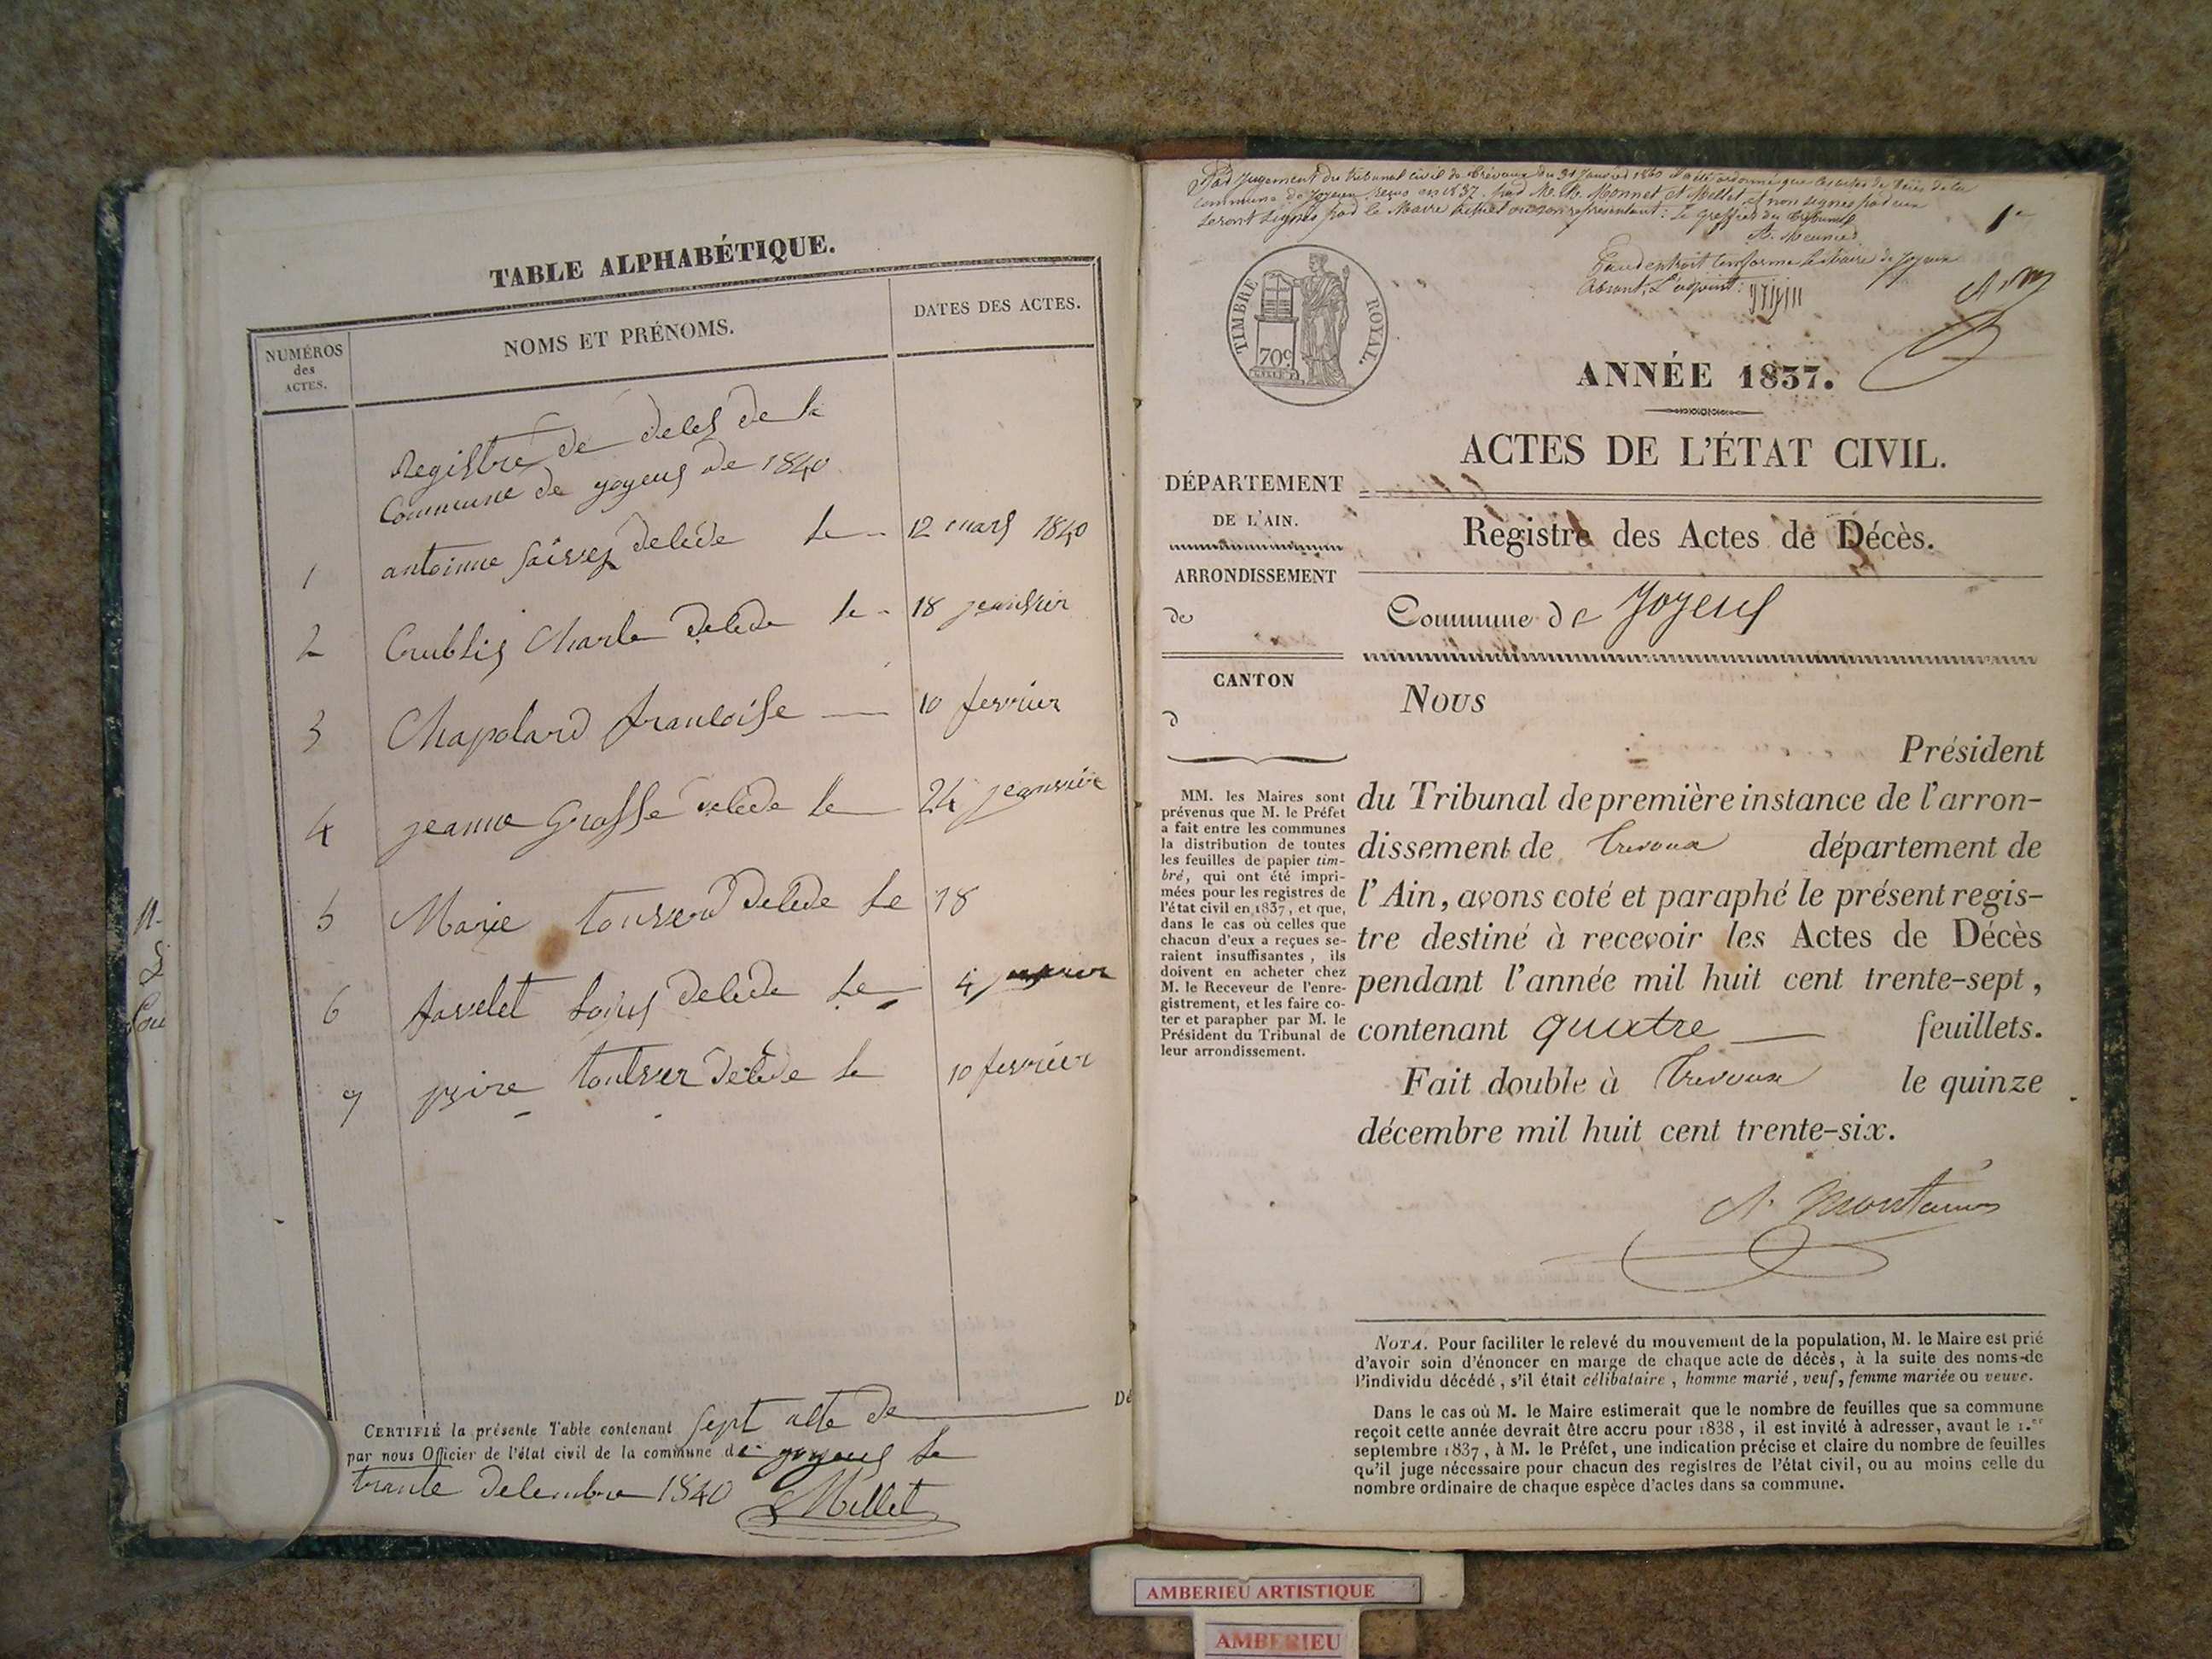 TABLE ALPHABÉTIQUE.
NUMÉROS des ACTES.
NOMS ET PRÉNOMS.
DATES DES ACTES.
Registre de deces de la
Commune de joyeux de 1840
1 antoinne decede le 12 mars 1840
2 Charle decede le 18 jeanvier
3 Chapolard francoise 10 fevrier
4 jeanne Grosse decede le 24 jeanvier
5 Marie decede le 18
6 Louis decede le 4
7 decede le 10 fevrier
CERTIFIÉ la présente Table contenant sept acte de
par nous Officier de l'état civil de la commune de joyeux le
trante decembre 1840 Millet
Par Jugement du tribunal civil de Trévoux du 31 Janvier 1840 il a été ordonné que les actes de décès de la
commune de Joyeux reçus en 1837 par M. M. Monnet et Millet et non signés par eux
seront signés par le Maire actuel ou son représentant: Le greffier du tribunal
1er
Pour extrait conforme le Maire de Joyeux
absent, L'adjoint:
TIMBRE ROYAL.
70c
ANNÉE 1837.
ACTES DE L'ÉTAT CIVIL.
Registre des Actes de Décès.
Commune de Joyeux
DÉPARTEMENT
DE L'AIN.
ARRONDISSEMENT
de
CANTON
d
MM. les Maires sont
prévenus que M. le Préfet
a fait entre les communes
la distribution de toutes
les feuilles de papier tim-
bré, qui ont été impri-
mées pour les registres de
l'état civil en 1837, et que,
dans le cas où celles que
chacun d'eux a reçues se-
raient insuffisantes, ils
doivent en acheter chez
M. le Receveur de l'enre-
gistrement, et les faire co-
ter et parapher par M. le
Président du Tribunal de
leur arrondissement.
Nous
Président
du Tribunal de première instance de l'arron-
dissement de Trevoux département de
l'Ain, avons coté et paraphé le présent regis-
tre destiné à recevoir les Actes de Décès
pendant l'année mil huit cent trente-sept,
contenant quatre feuillets.
Fait double à Trevoux le quinze
décembre mil huit cent trente-six.
NOTA. Pour faciliter le relevé du mouvement de la population, M. le Maire est prié
d'avoir soin d'énoncer en marge de chaque acte de décès, à la suite des noms de
l'individu décédé, s'il était célibataire, homme marié, veuf, femme mariée ou veuve.
Dans le cas où M. le Maire estimerait que le nombre de feuilles que sa commune
reçoit cette année devrait être accru pour 1838, il est invité à adresser, avant le 1.er
septembre 1837, à M. le Préfet, une indication précise et claire du nombre de feuilles
qu'il juge nécessaire pour chacun des registres de l'état civil, ou au moins celle du
nombre ordinaire de chaque espèce d'actes dans sa commune.
AMBERIEU ARTISTIQUE
AMBERIEU